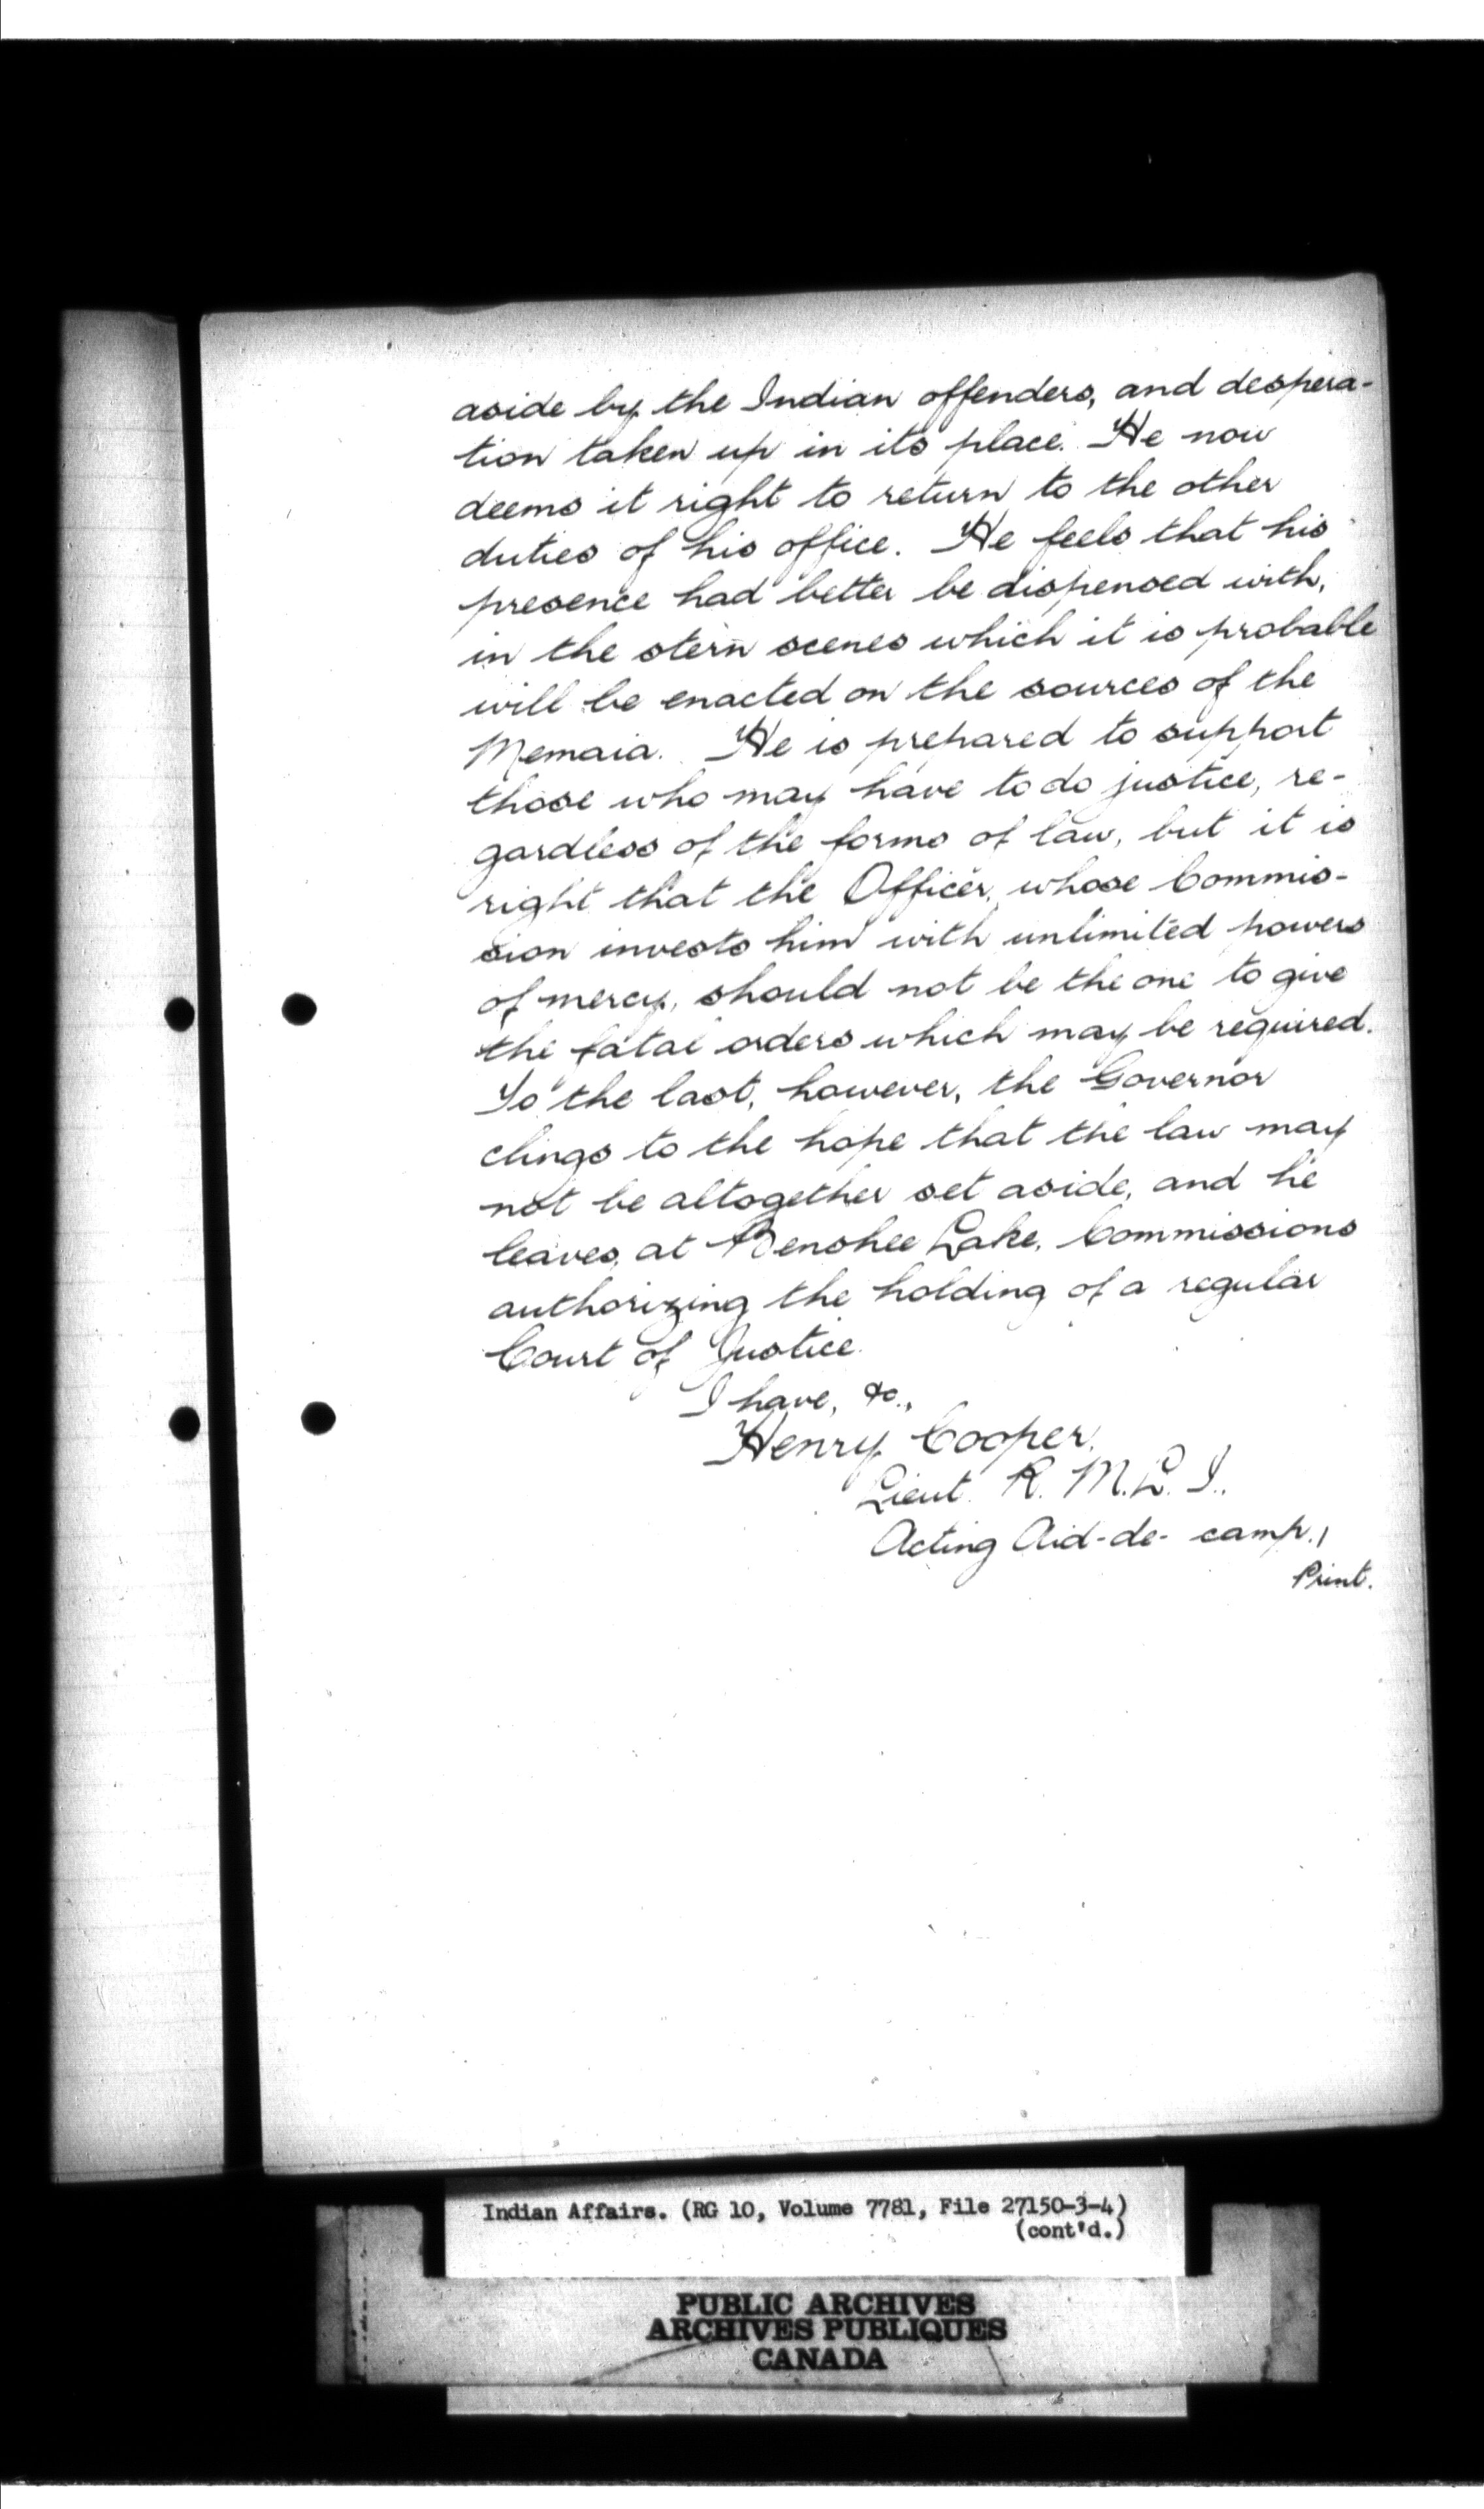 aside by the Indian offenders, and despera-
tion taken up in its place. He now
deems it right to return to the other
duties of his office. He feels that his
presence had better be dispensed with,
in the stern scenes which it is probable
will be enacted on the sources of the
Memaia. He is prepared to support
those who may have to do justice, re-
gardless of the forms of law, but it is
right that the Officer, whose Commis-
sion invests him with unlimited powers
of mercy, should not be the one to give
the fatal orders which may be required.
To the last, however, the Governor
clings to the hope that the law may
not be altogether set aside, and he
leaves, at Benshee Lake, Commissions
authorizing the holding of a regular
Court of Justice.
I have, &c.,
Henry Cooper,
Lieut. R. M. L. I.,
Acting Aid-de-camp.,
Print.
Indian Affairs. (RG 10, Volume 7781, File 27150-3-4)
(cont'd.)
PUBLIC ARCHIVES
ARCHIVES PUBLIQUES
CANADA